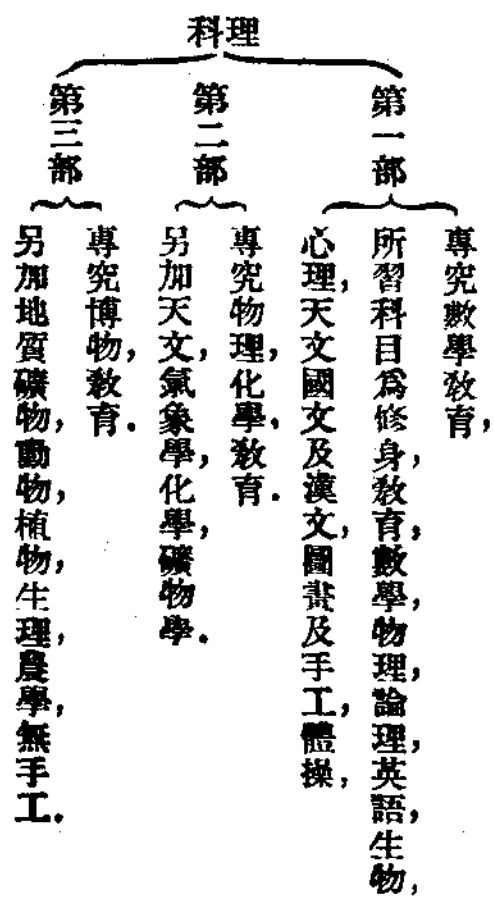 理科
第一部
專究數學敎育,
所習科目爲修身,敎育,數學,物理,論理,英語,生物,
心理,天文國文及漢文,圖書及手工,體操,
第二部
專究物理,化學,敎育.
另加天文,氣象學,化學,礦物學.
第三部
專究博物,敎育.
另加地質礦物,動物,植物,生理,農學,無手工.